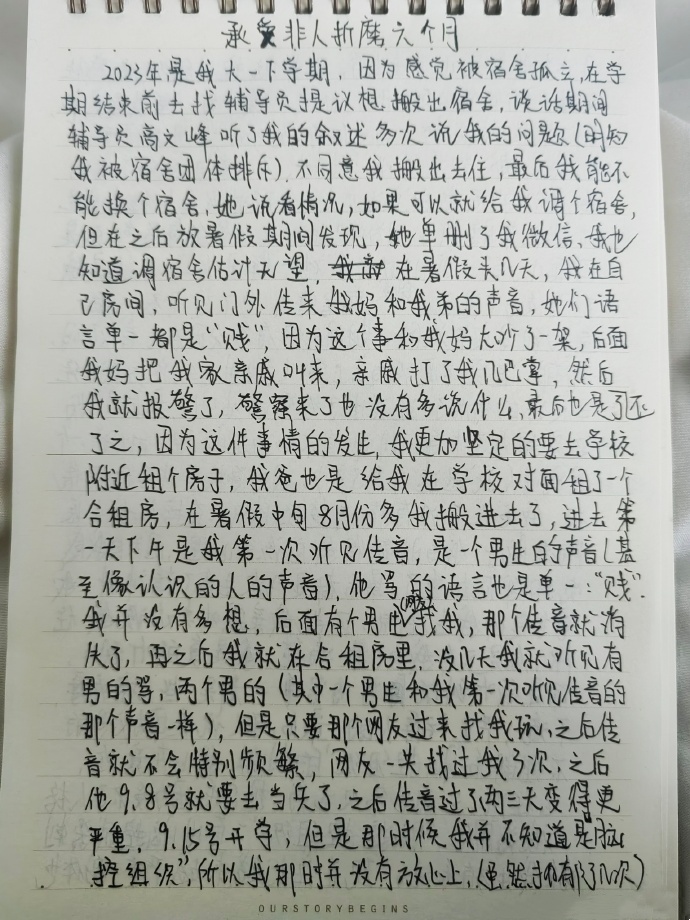 承受非人折磨六个月
2023年是我大一下学期，因为感觉被宿舍孤立，在学
期结束前去找辅导员提议想搬出宿舍，谈话期间
辅导员高文峰听了我的叙述多次说我的问题（明知
我被宿舍团体排斥）.不同意我搬出去住，最后我能不
能换个宿舍，她说看情况，如果可以就给我调个宿舍，
但在之后放暑假期间发现，她单删了我微信、我也
知道调宿舍估计无望，在暑假头几天，我在自
己房间，听见门外传来我妈和我弟的声音，她们语
言单一都是“贱”，因为这个事和我妈大吵了一架，后面
我妈把我家亲戚叫来，亲戚打了我几巴掌，然后
我就报警了，警察来了也没有多说什么，最后也是
了之，因为这件事情的发生，我更加坚定的要去学校
附近租个房子，我爸也是给我在学校对面租了一个
合租房，在暑假中旬8月份多我搬进去了，进去第
一天下午是我第一次听见传音，是一个男生的声音（甚
至像认识的人的声音），他骂的语言也是单一：“贱”.
我并没有多想，后面有个男(网友)我我，那个传音就消
失了，再之后我就在合租房里，没几天我就听见有
男的骂，两个男的（其中一个男生和我第一次听见传音的
那个声音一样），但是只要那个网友过来找我玩，之后传
音就不会特别频繁，网友一共找过我3次，之后
他9.8号就要去当兵了，之后传音过了两三天变得更
严重，9.15号开学，但是那时候我并不知道是“脑
控组织”，所以我那时并没有放心上，（虽然报了几次）
OURSTORYBEGINS